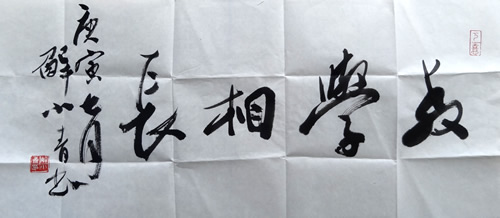 教學相長
庚寅七月
醉小青书